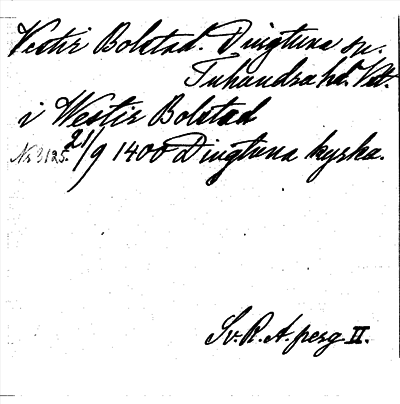 Vestir Bolstad. Dingtuna sn.
Tuhundra hd. Vstm.
i Westir Bolstad
Nr 3125. 21/9 1400 Dingtuna kyrka.
Sv. R. A. perg. II.